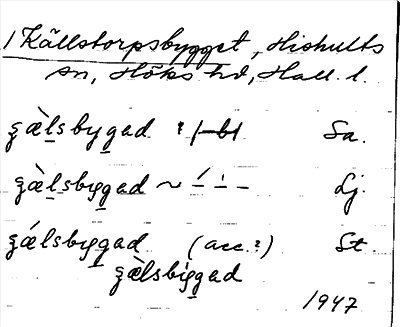 1 Källstorpsbygget, Hishults
sn, Höks hd, Hall. l.
ʒæ̀lsbygad Sa.
ʒæ̀lsbyggad ~ Lj.
ʒǽlsbyggad (acc.?) St.
ʒæ̀lsbiggad
1947